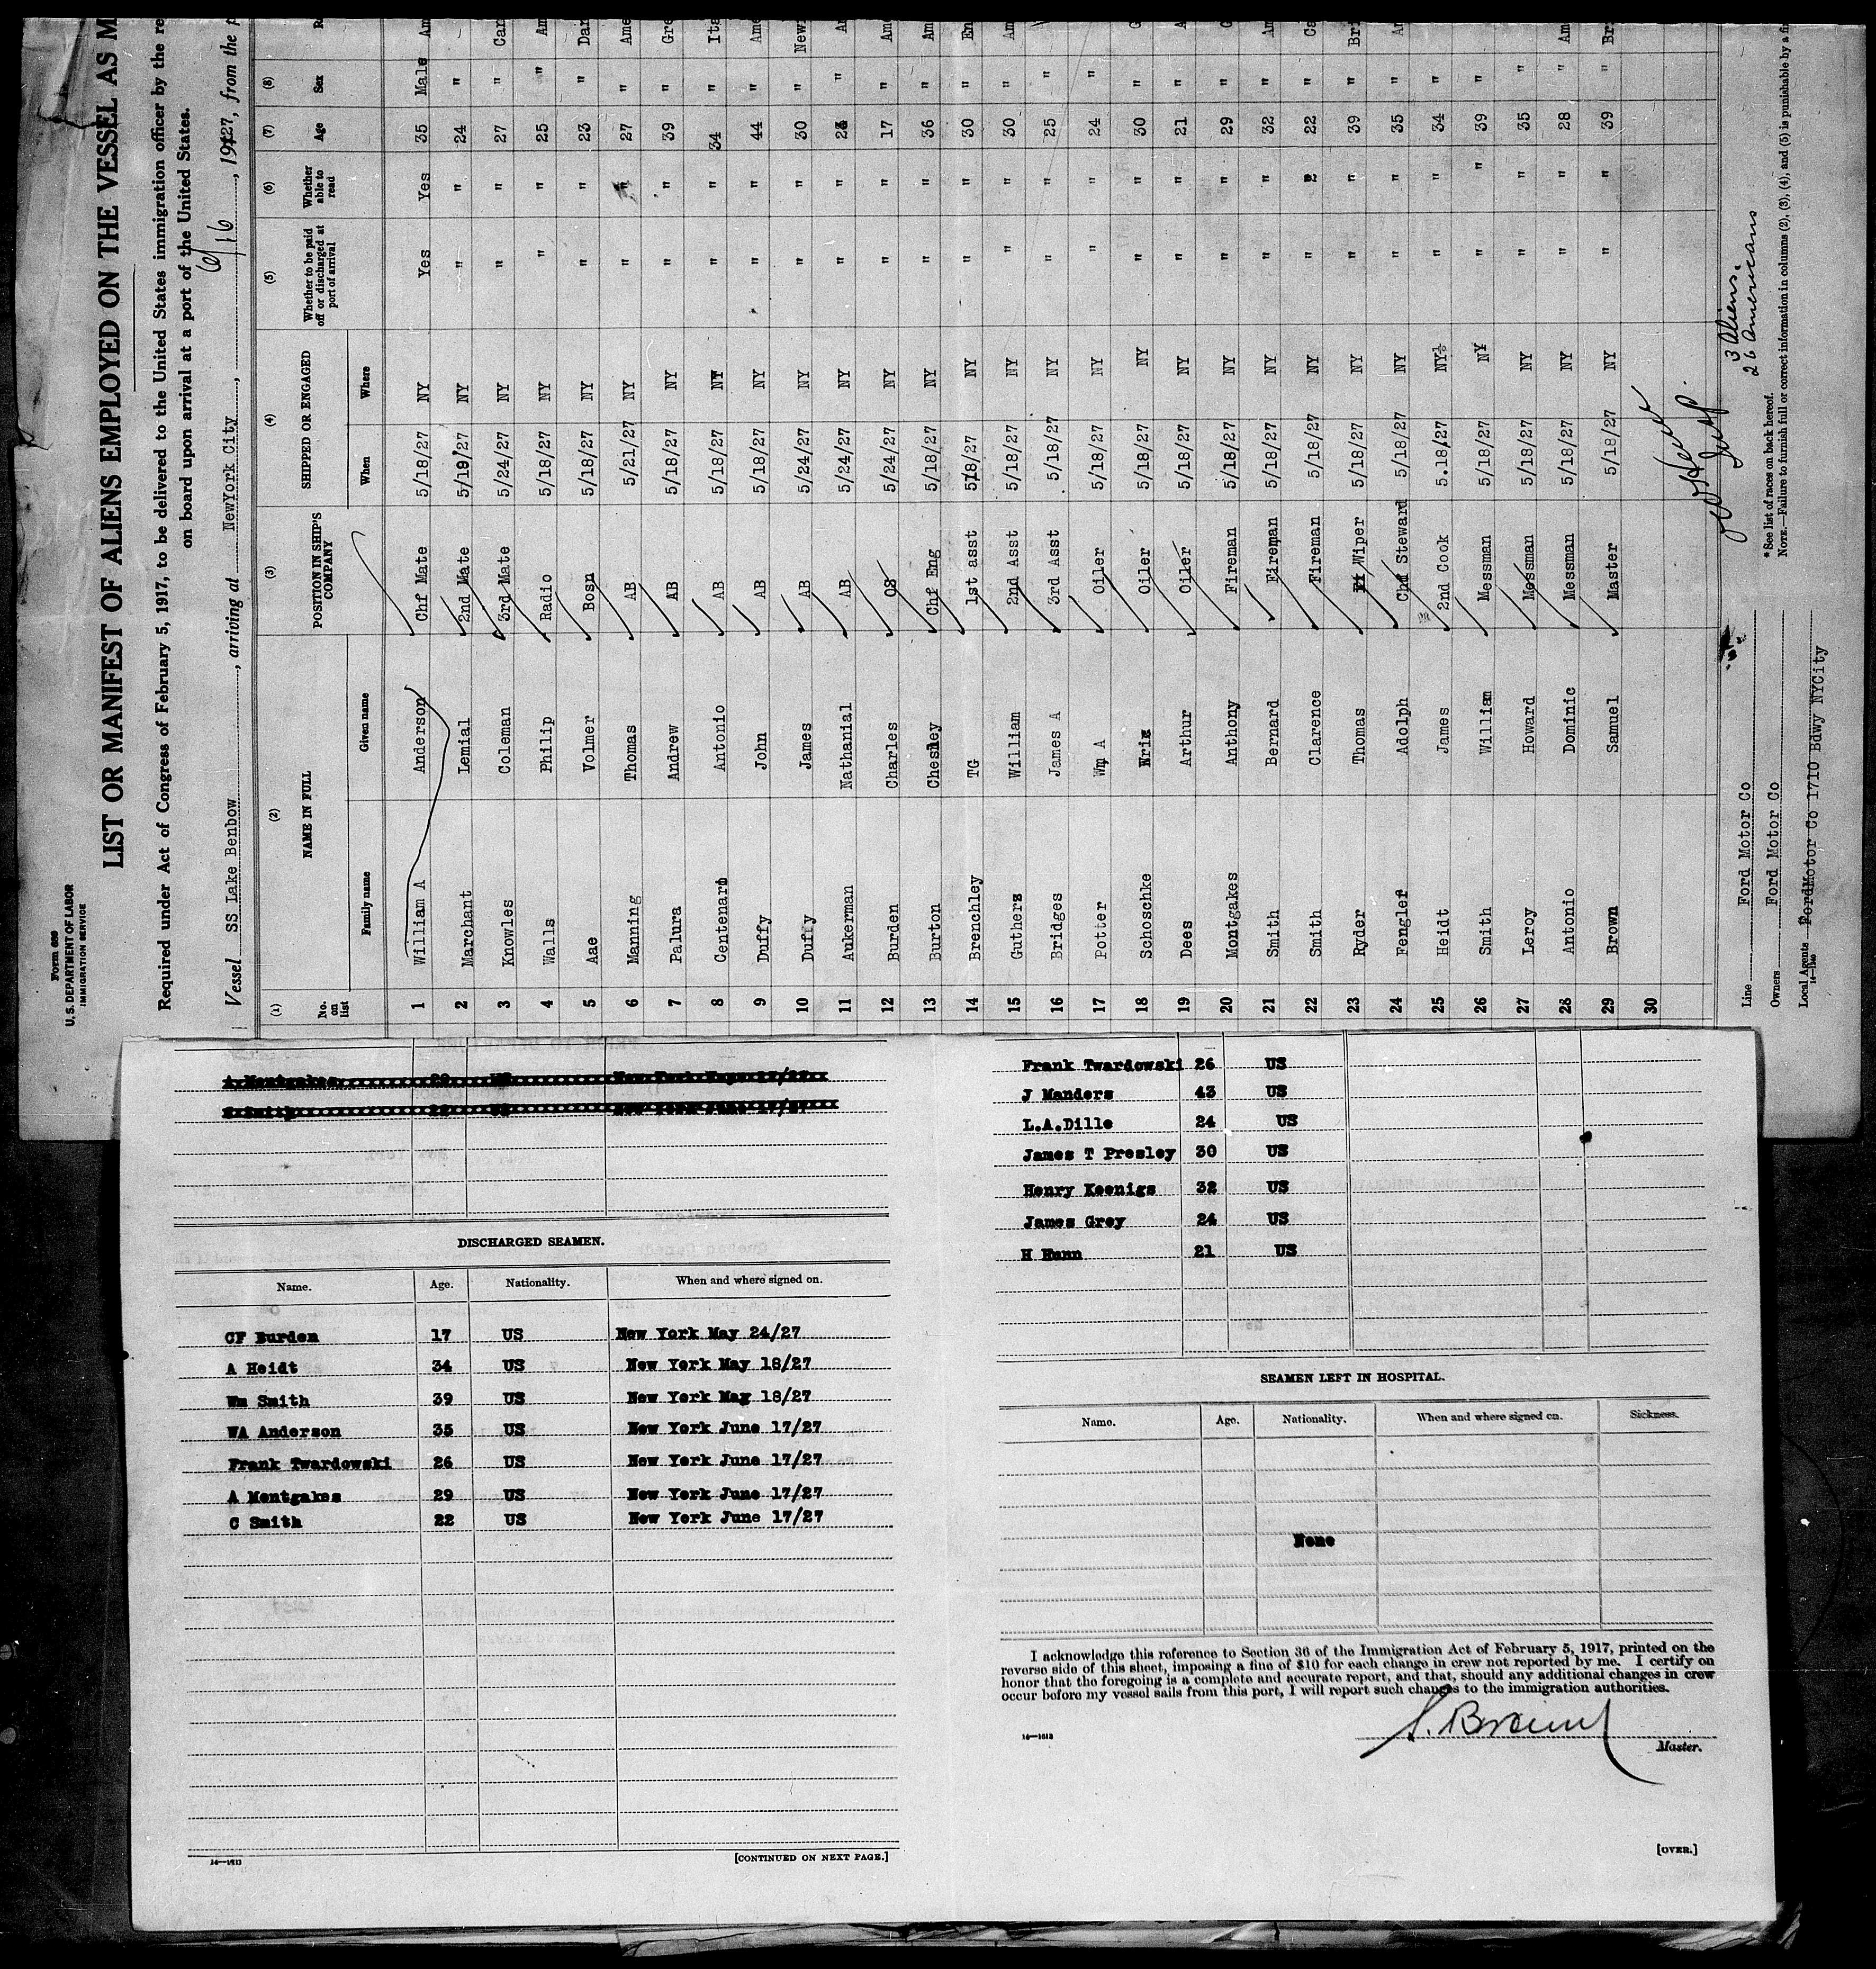 Form 680
U. S. DEPARTMENT OF LABOR
IMMIGRATION SERVICE
LIST OR MANIFEST OF ALIENS EMPLOYED ON THE VESSEL AS M
Required under Act of Congress of February 5, 1917, to be delivered to the United States immigration officer by the re
on board upon arrival at a port of the United States.
Vessel SS Lake Benbow, arriving at NewYork City, 6/16, 1927, from the p
(1) (2) (3) (4) (5) (6) (7) (8)
No. on list NAME IN FULL POSITION IN SHIP'S COMPANY SHIPPED OR ENGAGED Whether to be paid off or discharged at port of arrival Whether able to read Age Sex R
Family name Given name When Where
1 William A Anderson Chf Mate 5/18/27 NY Yes Yes 35 Male Am
2 Marchant Lemial 2nd Mate 5/19/27 NY " " 24 "
3 Knowles Coleman 3rd Mate 5/24/27 NY " " 27 " Car
4 Walls Philip Radio 5/18/27 NY " " 25 " Am
5 Aae Volmer Bosn 5/18/27 NY " " 23 " Dan
6 Manning Thomas AB 5/21/27 NY " " 27 " Ame
7 Palura Andrew AB 5/18/27 NY " " 39 " Gre
8 Centenaro Antonio AB 5/18/27 NY " " 34 " Ita
9 Duffy John AB 5/18/27 NY " " 44 " Ame
10 Duffy James AB 5/24/27 NY " " 30 " Newi
11 Aukerman Nathanial AB 5/24/27 NY " " " A
12 Burden Charles OS 5/24/27 NY " " 17 " Ame
13 Burton Chesley Chf Eng 5/18/27 NY " " 36 " Am
14 Brenchley TG 1st asst 5/18/27 NY " " 30 " En
15 Guthers William 2nd Asst 5/18/27 NY " " 30 " Am
16 Bridges James A 3rd Asst 5/18/27 NY " " 25 "
17 Potter Wm A Oiler 5/18/27 NY " " 24 "
18 Schoschke Oiler 5/18/27 NY " " 30 " G
19 Dees Arthur Oiler 5/18/27 NY " " 21 " A
20 Montgakes Anthony Fireman 5/18/27 NY " " 29 "
21 Smith Bernard Fireman 5/18/27 NY " " 32 " Am
22 Smith Clarence Fireman 5/18/27 NY " " 22 " Ca
23 Ryder Thomas Wiper 5/18/27 NY " " 39 " Bri
24 Fengler Adolph Chf Steward 5/18/27 NY " " 35 " Am
25 Heidt James 2nd Cook 5.18/27 NY " " 34 "
26 Smith William Messman 5/18/27 NY " " 39 "
27 Leroy Howard Messman 5/18/27 NY " " 35 "
28 Antonio Dominic Messman 5/18/27 NY " " 28 " Am
29 Brown Samuel Master 5/18/27 NY " " 39 " Br
30
3 Aliens.
26 Americans
Line Ford Motor Co
Owners Ford Motor Co
Local Agents FordMotor Co 1710 Bdwy NYCity
14—1240
* See list of races on back hereof.
NOTE.—Failure to furnish full or correct information in columns (2), (3), (4), and (5) is punishable by a fin
A Montgakes 29 US New York
Smith 22 US New York June 17/27
DISCHARGED SEAMEN.
Name. Age. Nationality. When and where signed on.
CF Burden 17 US New York May 24/27
A Heidt 34 US New York May 18/27
Wm Smith 39 US New York May 18/27
WA Anderson 35 US New York June 17/27
Frank Twardowski 26 US New York June 17/27
A Montgakes 29 US New York June 17/27
C Smith 22 US New York June 17/27
14—1613
[CONTINUED ON NEXT PAGE.]
Frank Twardowski 26 US
J Manders 43 US
L.A.Dille 24 US
James T Presley 30 US
Henry Koenigs 32 US
James Grey 24 US
H Hann 21 US
SEAMEN LEFT IN HOSPITAL.
Name. Age. Nationality. When and where signed on. Sickness.
None
I acknowledge this reference to Section 36 of the Immigration Act of February 5, 1917, printed on the
reverse side of this sheet, imposing a fine of $10 for each change in crew not reported by me. I certify on
honor that the foregoing is a complete and accurate report, and that, should any additional changes in crew
occur before my vessel sails from this port, I will report such changes to the immigration authorities.
S. Brown
14—1613
Master.
[OVER.]